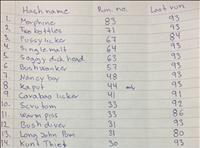 Hash name Run no. Last run
1. Morphine 83 93
2. Two bottles 71 93
3. Pussy licker 67 84
4. Single malt 64 93
5. Soggy dick head 63 93
6. Bush wanker 57 93
7. Nancy boy 48 93
8. Kaput 44 93
9. Caravan licker 41 91
10. Scrotum 33 92
11. Warm piss 33 86
12. Bush diver 31 93
13. Long John Pom 31 80
14. Kunt Thief 30 93